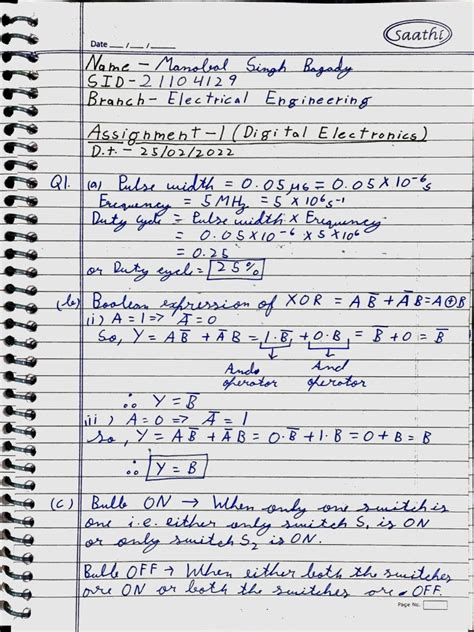 Saathi
Date __/__/__
Name - Manobal Singh Bagady
SID - 21104129
Branch - Electrical Engineering
Assignment-1 (Digital Electronics)
D.t. - 25/02/2022
Q1. (a) Pulse width = 0.05 μs = 0.05 × 10⁻⁶ s
Frequency = 5 MHz = 5 × 10⁶ s⁻¹
Duty cycle = Pulse width × Frequency
= 0.05 × 10⁻⁶ × 5 × 10⁶
= 0.25
or Duty cycle = 25%
(b) Boolean expression of XOR = AB̅ + A̅B = A⊕B
i) A = 1 => A̅ = 0
So, Y = AB̅ + A̅B = 1.B̅ + 0.B = B̅ + 0 = B̅
And And
operator operator
∴ Y = B̅
ii) A = 0 => A̅ = 1
So, Y = AB̅ + A̅B = 0.B̅ + 1.B = 0 + B = B
∴ Y = B
(c) Bulb ON → When only one switch is
one i.e. either only switch S₁ is ON
or only switch S₂ is ON.
Bulb OFF → When either both the switches
are ON or both the switches are OFF.
Page No.